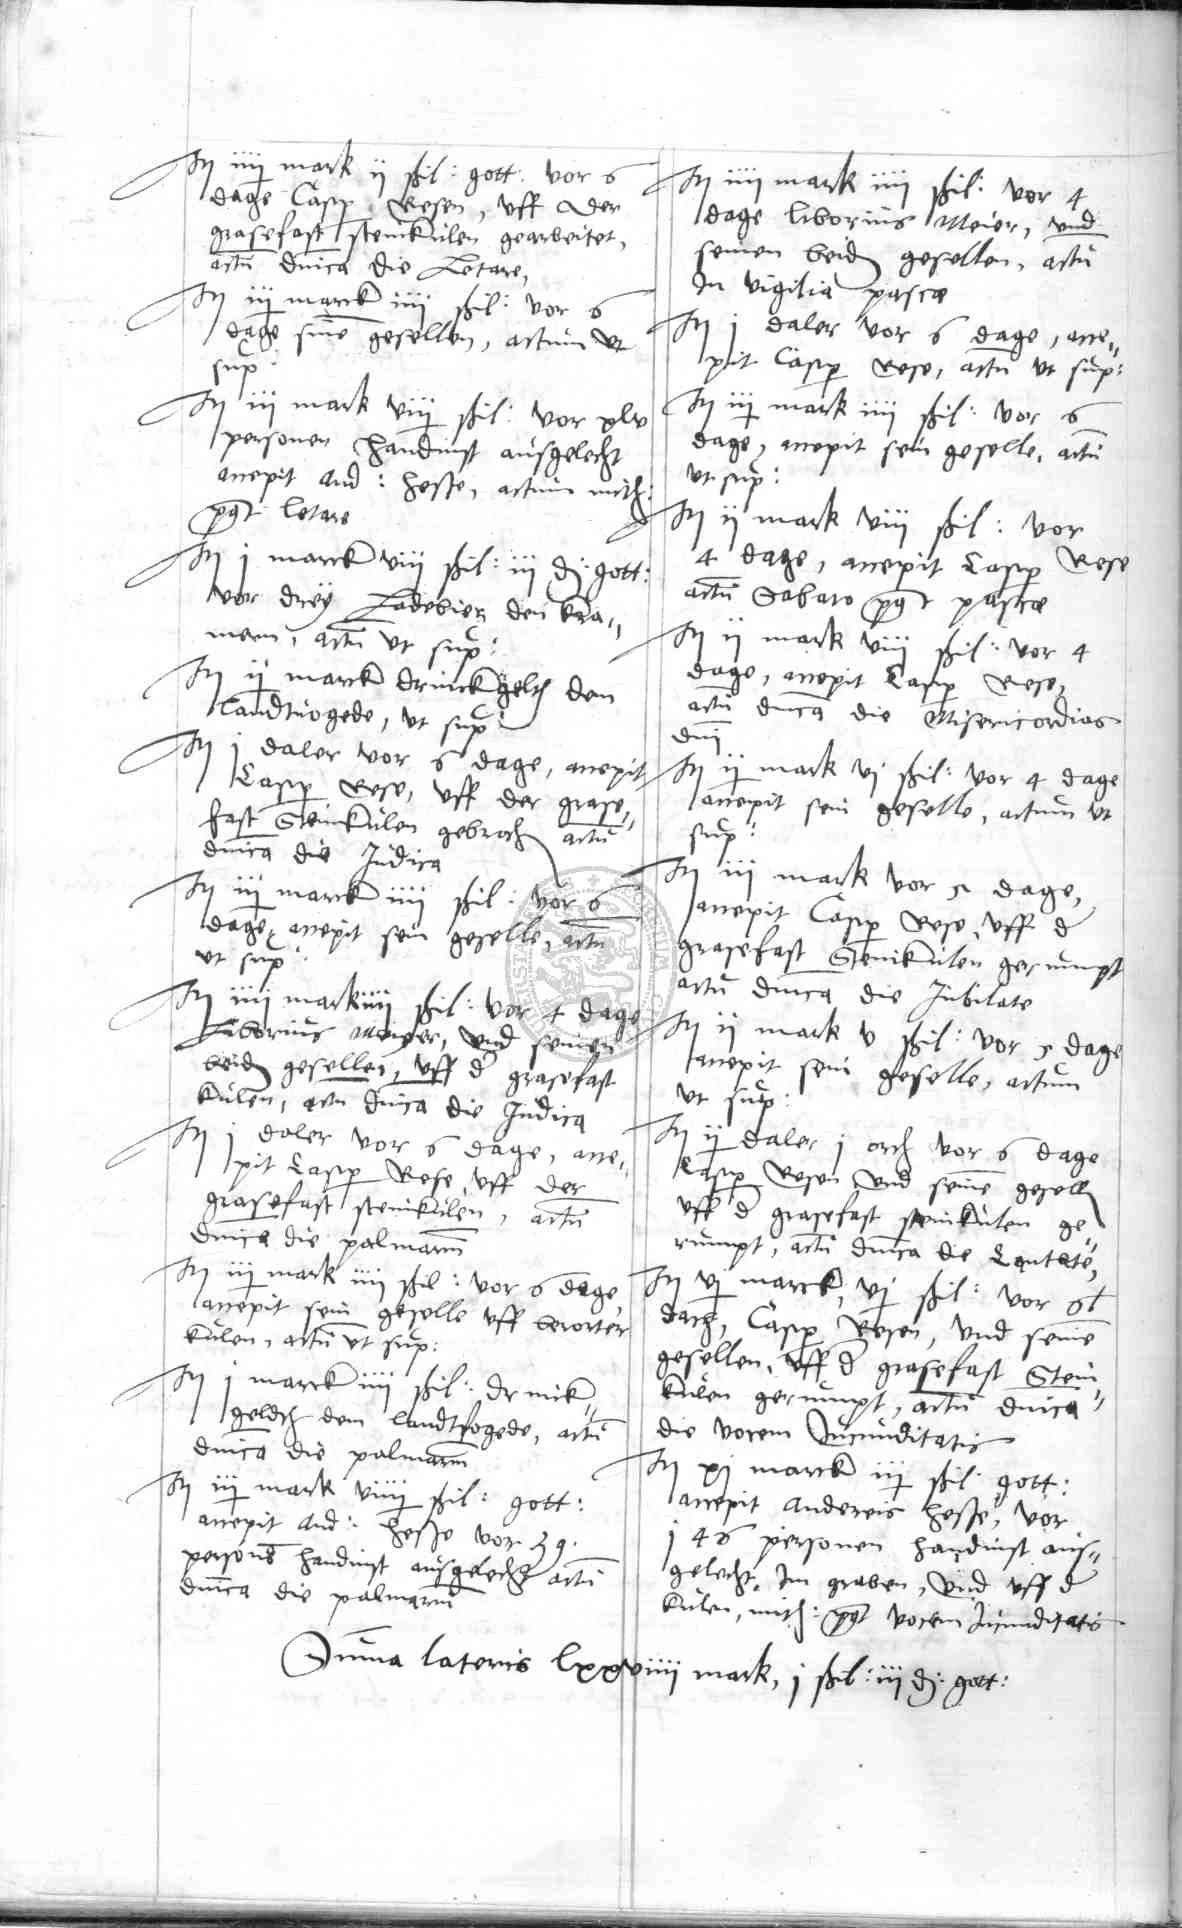 It iiij mark ij ßil: gott: vor 6
dage Casp Resen, vff der
grasefast steinkulen gearbeitet,
actũ dnica die Letare,
It iij marck iiij ßil: vor 6
dage sine gesellen, actum vt
sup:
It iij mark viij ßil: vor xlv
personen handinst ausgelecht
accepit And: Hesse, actum mith:
post letare
It j marck viij ßil: iij d: gott:
vor drey Ladebier den kra-
mern, actũ vt sup:
It ij marck drinckgelth dem
Landtuogede, vt sup:
It j daler vor 6 dage, accepit
Casp Rese, vff der grase-
fast Steinkulen gebroch actũ
dnica die Judica
It iij marck iiij ßil: vor 6
dage, accepit sein geselle, actũ
vt sup:
It iiij mark iiij ßil: vor 4 dage
Liborius Meiger, vnd seinen
beid gesellen, vff d grasefast
kulen, actũ dnica die Judica
It j daler vor 6 dage, acce-
pit Casp Rese, vff der
grasefast steinkulen, actũ
dnica die palmarũ
It iij mark iiij ßil: vor 6 dage,
accepit sein geselle vff berorter
kulen, actũ vt sup:
It j marck iiij ßil: drinik-
geldth dem landtfogede, actũ
dnica die palmarũ
It iij mark viiij ßil: gott:
accepit And: Hesse vor 39.
personẽ handinst ausgelecht actũ
dnica die palmarũ
It iiij mark iiij ßil: vor 4
dage liborius Meier, vnd
seinen beid gesellen, actũ
In vigilia pascæ
It j daler vor 6 dage, acce-
pit Casp Rese, actũ vt sup:
It iij mark iiij ßil: vor 6
dage, accepit sein geselle, actũ
vt sup:
It ij mark viii ßil: vor
4 dage, accepit Casp Rese
actũ Sabato post pascæ
It ij mark viii ßil: vor 4
dage, accepit Casp Rese,
actũ dnica die Misericordias
dnj
It ij mark vj ßil: vor 4 dage
accepit sein geselle, actum vt
sup:
It iij mark vor 5 dage,
accepit Casp Rese, vff d
grasefast Steinkulen gerumpt
actũ dnica die Jubilate
It ij mark v ßil: vor 5 dage
accepit sein geselle, actum
vt sup:
It ij daler j orth vor 6 dage
Casp Resen vnd seinẽ gesell
vff d grasefast steinkulen ge-
rumpt, actũ dnica die Cantate,
It vj marck, vj ßil: vor 6½
dach, Casp Resen, vnd seinẽ
gesellen, vff d grasefast Stein-
kulen gerumpt, actũ dnica
die vocem Jucunditatis
It xj marck iij ßil: gott:
accepit Andereis Hesse, vor
146 personen handinst aus-
gelecht, Im graben, vnd vff d
kulen, mith: post vocem Jucunditatis
Suma lateris lxxviiij mark, j ßil: iij d: gott: